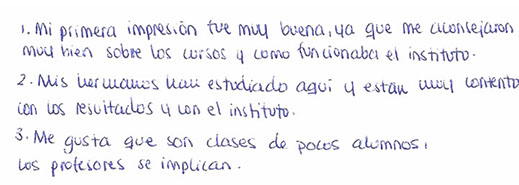 1. Mi primera impresión fue muy buena, ya que me aconsejaron
muy bien sobre los cursos y como funcionaba el instituto.
2. Mis hermanos han estudiado aquí y están muy contento
con los resultados y con el instituto.
3. Me gusta que son clases de pocos alumnos,
los profesores se implican.